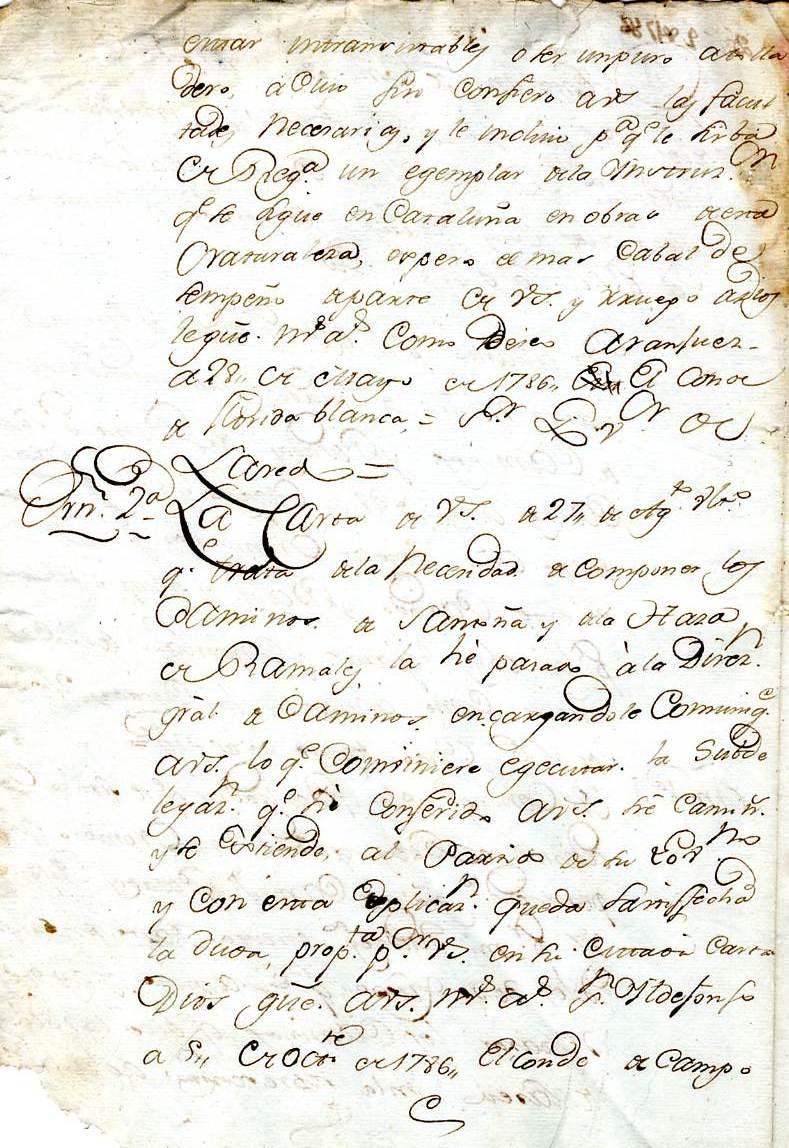 estar intransitables o ser un puro atolla
dero, a Cuio fin confiero a VS las facul
tades Necesarias, y le incluio p.ª q.e le sirba
de Reg.ª un egemplar de la Instruz.on
q.e se sigue en Cataluña en obras de esta
Naturaleza, espero el mas Cabal de
sempeño departe de VS. y Ruego a Dios
le gûe. m.s a.s Como Deseo Aranjuez
a 28,, de Mayo de 1786,, El Conde
de Florida blanca, = S.or
Laredo =
Orn. 2.ª La Carta de VS. de 27,, de Ag.to Ult.o
q.e trata de la Necesidad de componer los
Caminos de Santoña y de la Haza
de Ramales la hè pasado à la Direz.n
gral de Caminos, encargandole Comuniq.e
a VS. lo q.e Combiniere egecutar. la Subde
legaz.n q.e hè Conferido a VS. sre Camin.s
y se Estiende, al Partido de su Gov.no
y Con esta Esplicaz.n queda satisfecha
la duda, prop.ta p.r VS. en su Citada Carta
Dios gûe. a VS. m.s a.s S.n Yldefonso
a 5,, de Oct.re de 1786,, El conde de Campo